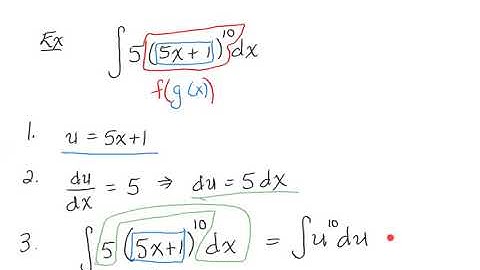 Ex ∫ 5 (5x+1)^10 dx
f(g(x))
1. u = 5x+1
2. du/dx = 5 ⇒ du = 5 dx
3. ∫ 5 (5x+1)^10 dx = ∫ u^10 du